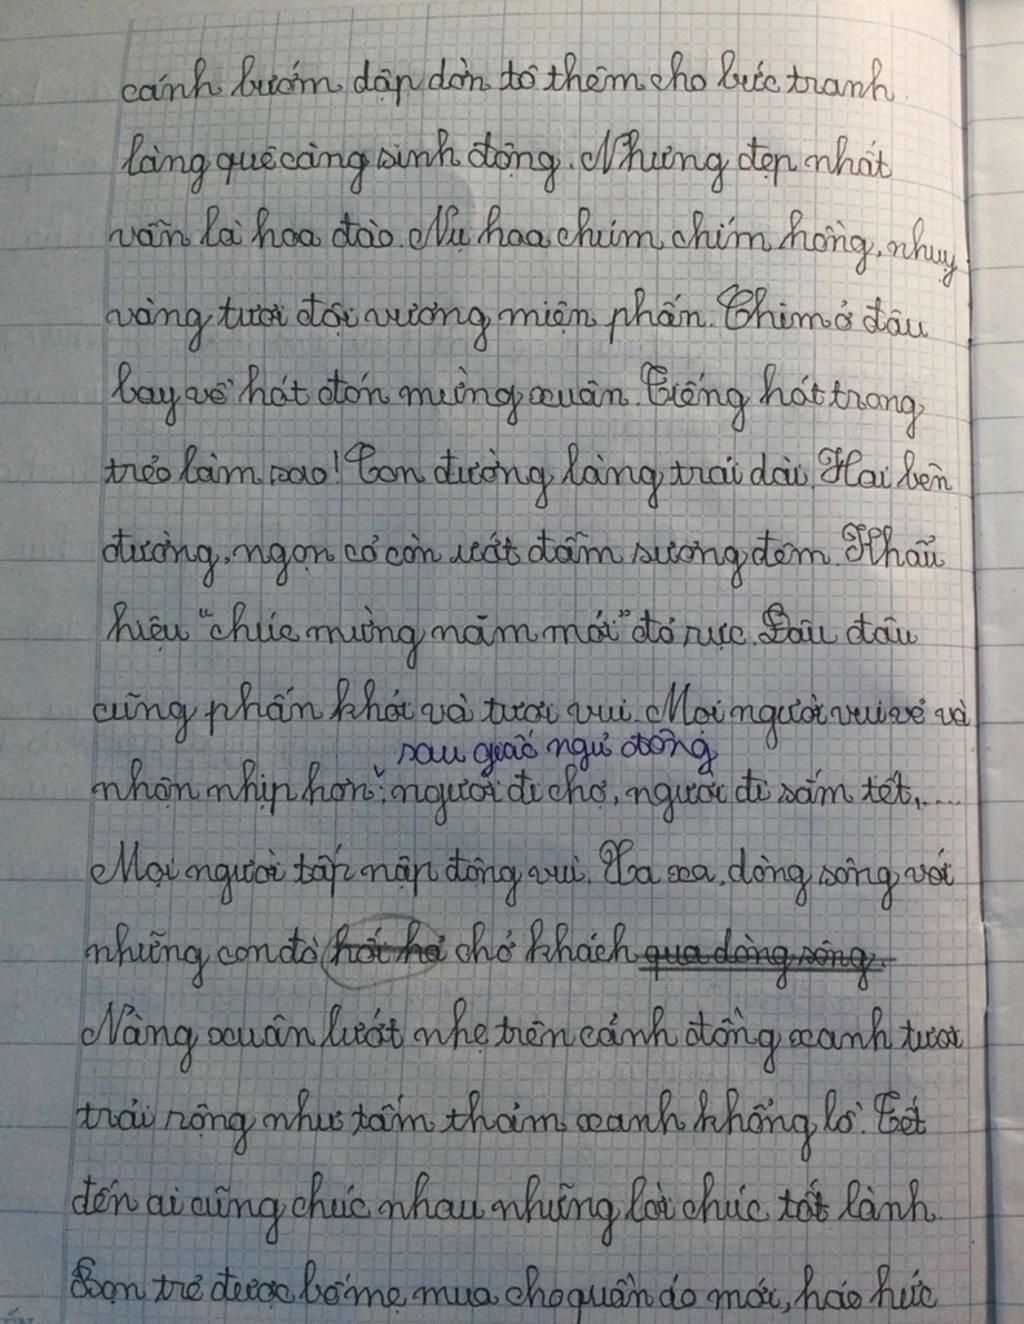 cánh bướm dập dờn tô thêm cho bức tranh
làng quê càng sinh động. Nhưng đẹp nhất
vẫn là hoa đào. Nụ hoa chúm chím hồng, nhuỵ
vàng tươi đội vương miện phấn. Chim ở đâu
bay về hát đón mừng xuân. Tiếng hát trong
trẻo làm sao! Con đường làng trải dài. Hai bên
đường, ngọn cỏ còn ướt đẫm sương đêm. Khẩu
hiệu "chúc mừng năm mới" đỏ rực. Đâu đâu
cũng phấn khởi và tươi vui. Mọi người vui vẻ và
sau giấc ngủ đông
nhộn nhịp hơn: người đi chợ, người đi sắm tết,...
Mọi người tấp nập đông vui. Xa xa, dòng sông với
những con đò hối hả chở khách qua dòng sông.
Nàng xuân lướt nhẹ trên cánh đồng xanh tươi
trải rộng như tấm thảm xanh khổng lồ. Tết
đến ai cũng chúc nhau những lời chúc tốt lành.
Bọn trẻ được bố mẹ mua cho quần áo mới, háo hức